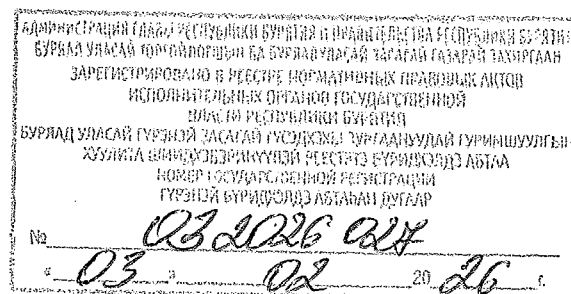 АДМИНИСТРАЦИЯ ГЛАВЫ РЕСПУБЛИКИ БУРЯТИЯ И ПРАВИТЕЛЬСТВА РЕСПУБЛИКИ БУРЯТИЯ
БУРЯАД УЛАСАЙ ТОЛГОЙЛОГШЫН БА БУРЯАД УЛАСАЙ ЗАСАГАЙ ГАЗАРАЙ ЗАХИРГААН
ЗАРЕГИСТРИРОВАНО В РЕЕСТРЕ НОРМАТИВНЫХ ПРАВОВЫХ АКТОВ
ИСПОЛНИТЕЛЬНЫХ ОРГАНОВ ГОСУДАРСТВЕННОЙ
ВЛАСТИ РЕСПУБЛИКИ БУРЯТИЯ
БУРЯАД УЛАСАЙ ГҮРЭНЭЙ ЗАСАГАЙ ГҮЙСЭДХЭХЫ ЗУРГААНУУДАЙ ГУРИМШУУЛГЫН
ХУУЛИТА РЕЕСТРТЭ БҮРИДХЭЛДЭ АБТАА
НОМЕР ГОСУДАРСТВЕННОЙ РЕГИСТРАЦИИ
ГҮРЭНЭЙ БҮРИДХЭЛДЭ АБТАҺАН ДУГААР
№ 03 2026 027
« 03 » 02 20 26 г.